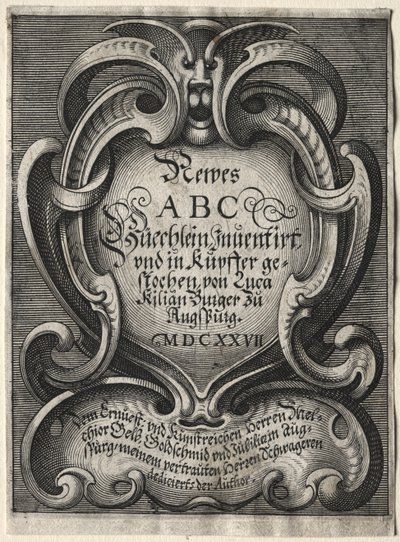 Newes
ABC
Büechlein Inventirt
vnd in Kupffer ge-
stochen, von Luca
Kilian Burger zů
Augspurg.
MDCXXVII
Dem Ernvest vnd Kunstreichen Herren Mel-
chior Gelb Goldschmid vnd Jubilier in Aug-
spurg meinem vertrauten Herren Schwageren
dediciert der Author.